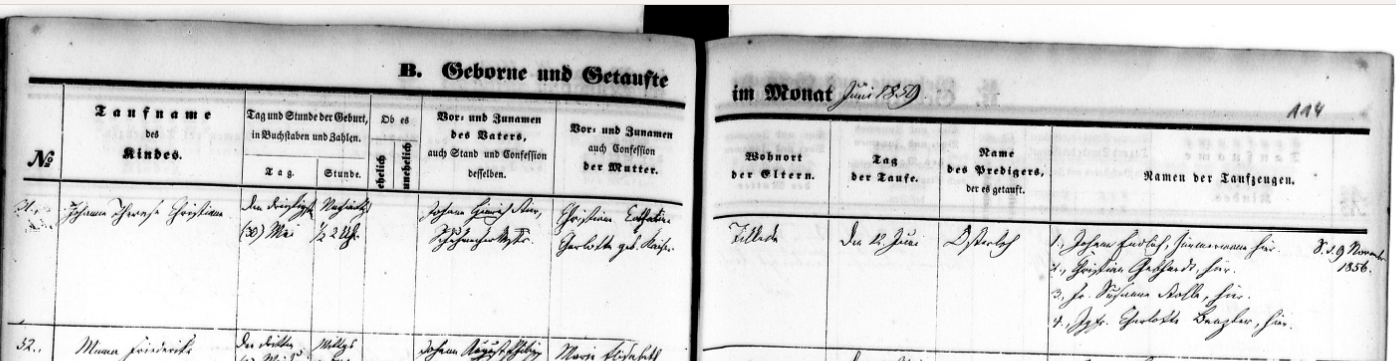 B. Geborne und Getaufte
im Monat Juni 1859
114
№
Taufname
des
Kindes.
Tag und Stunde der Geburt,
in Buchstaben und Zahlen.
Tag.
Stunde.
Ob es
ehelich
unehelich
Vor- und Zunamen
des Vaters,
auch Stand und Confession
desselben.
Vor- und Zunamen
auch Confession
der Mutter.
Wohnort
der Eltern.
Tag
der Taufe.
Name
des Predigers,
der es getauft.
Namen der Taufzeugen.
Johanne Therese Christiane
den dreißigst
(30) Mai
Nachmitt.
½ 2 Uhr.
Johann
Christiane Catharine
Charlotte geb. Kaiser
Tilleda
den 12. Juni
Osterloh
1., Johann Zimmermann hier.
2., Christian Gebhardt, hier.
3., Fr. Susanne hier.
4., Jgfr. Charlotte hier.
9 November
1856.
52.
Minna Friederike
den dritten
Mittgs
Johann August
Marie Elisabeth